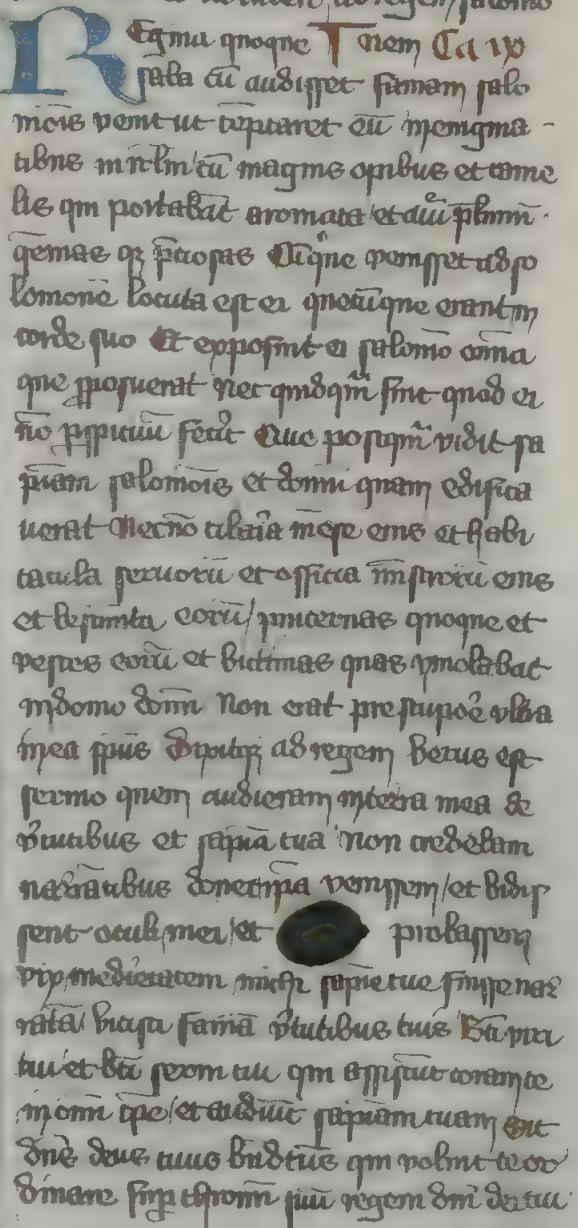 Regina quoque Ca ix
saba cū audisset famam salo
mōis venit ut tēptaret eū in enigma-
tibus in irlm/ cū magnis opibus et came
lis qui portabāt aromata/ et auri plurimū
gēmas qz p̄ciosas Cūqne venisset ad so
lomonē locuta est ei quecūqne erant in
corde suo Et exposuit ei salomō omīa
que p̄posuerat Nec quidq̄m fuit quod ei
nō p̄spicuū fecerit Que postq̄m vidit sa
piam salomōis et domū quam edifica
uerat Necnō cibaria mēse eius et habi
tacula seruorū et officia mīstrorū eius
et vestimīta eorū/ pincernas quoqne et
vestes eorū et victimas quas ymolabat
in domo domī Non erat pre stupore vltra
in ea sp̄us Dixitqz ad regem Verus est
sermo quem audieram in terra mea de
v̄tutibus et sapiā tua Non credebam
narrātibus donec ip̄a venissem/ et vidis
sent oculi mei/ et probassem
vix medietatem michi sapiē tue fuisse nar
ratā/ vicisti famā v̄tutibus tuis Bti viri
tui et bti serui tui qui assistūt coram te
in omī tp̄e/ et audiūt sapiam tuam sit
dn̄s deus tuus bn̄dctus qui voluit te or
dinare sup thronū suū regem dn̄i dei tui